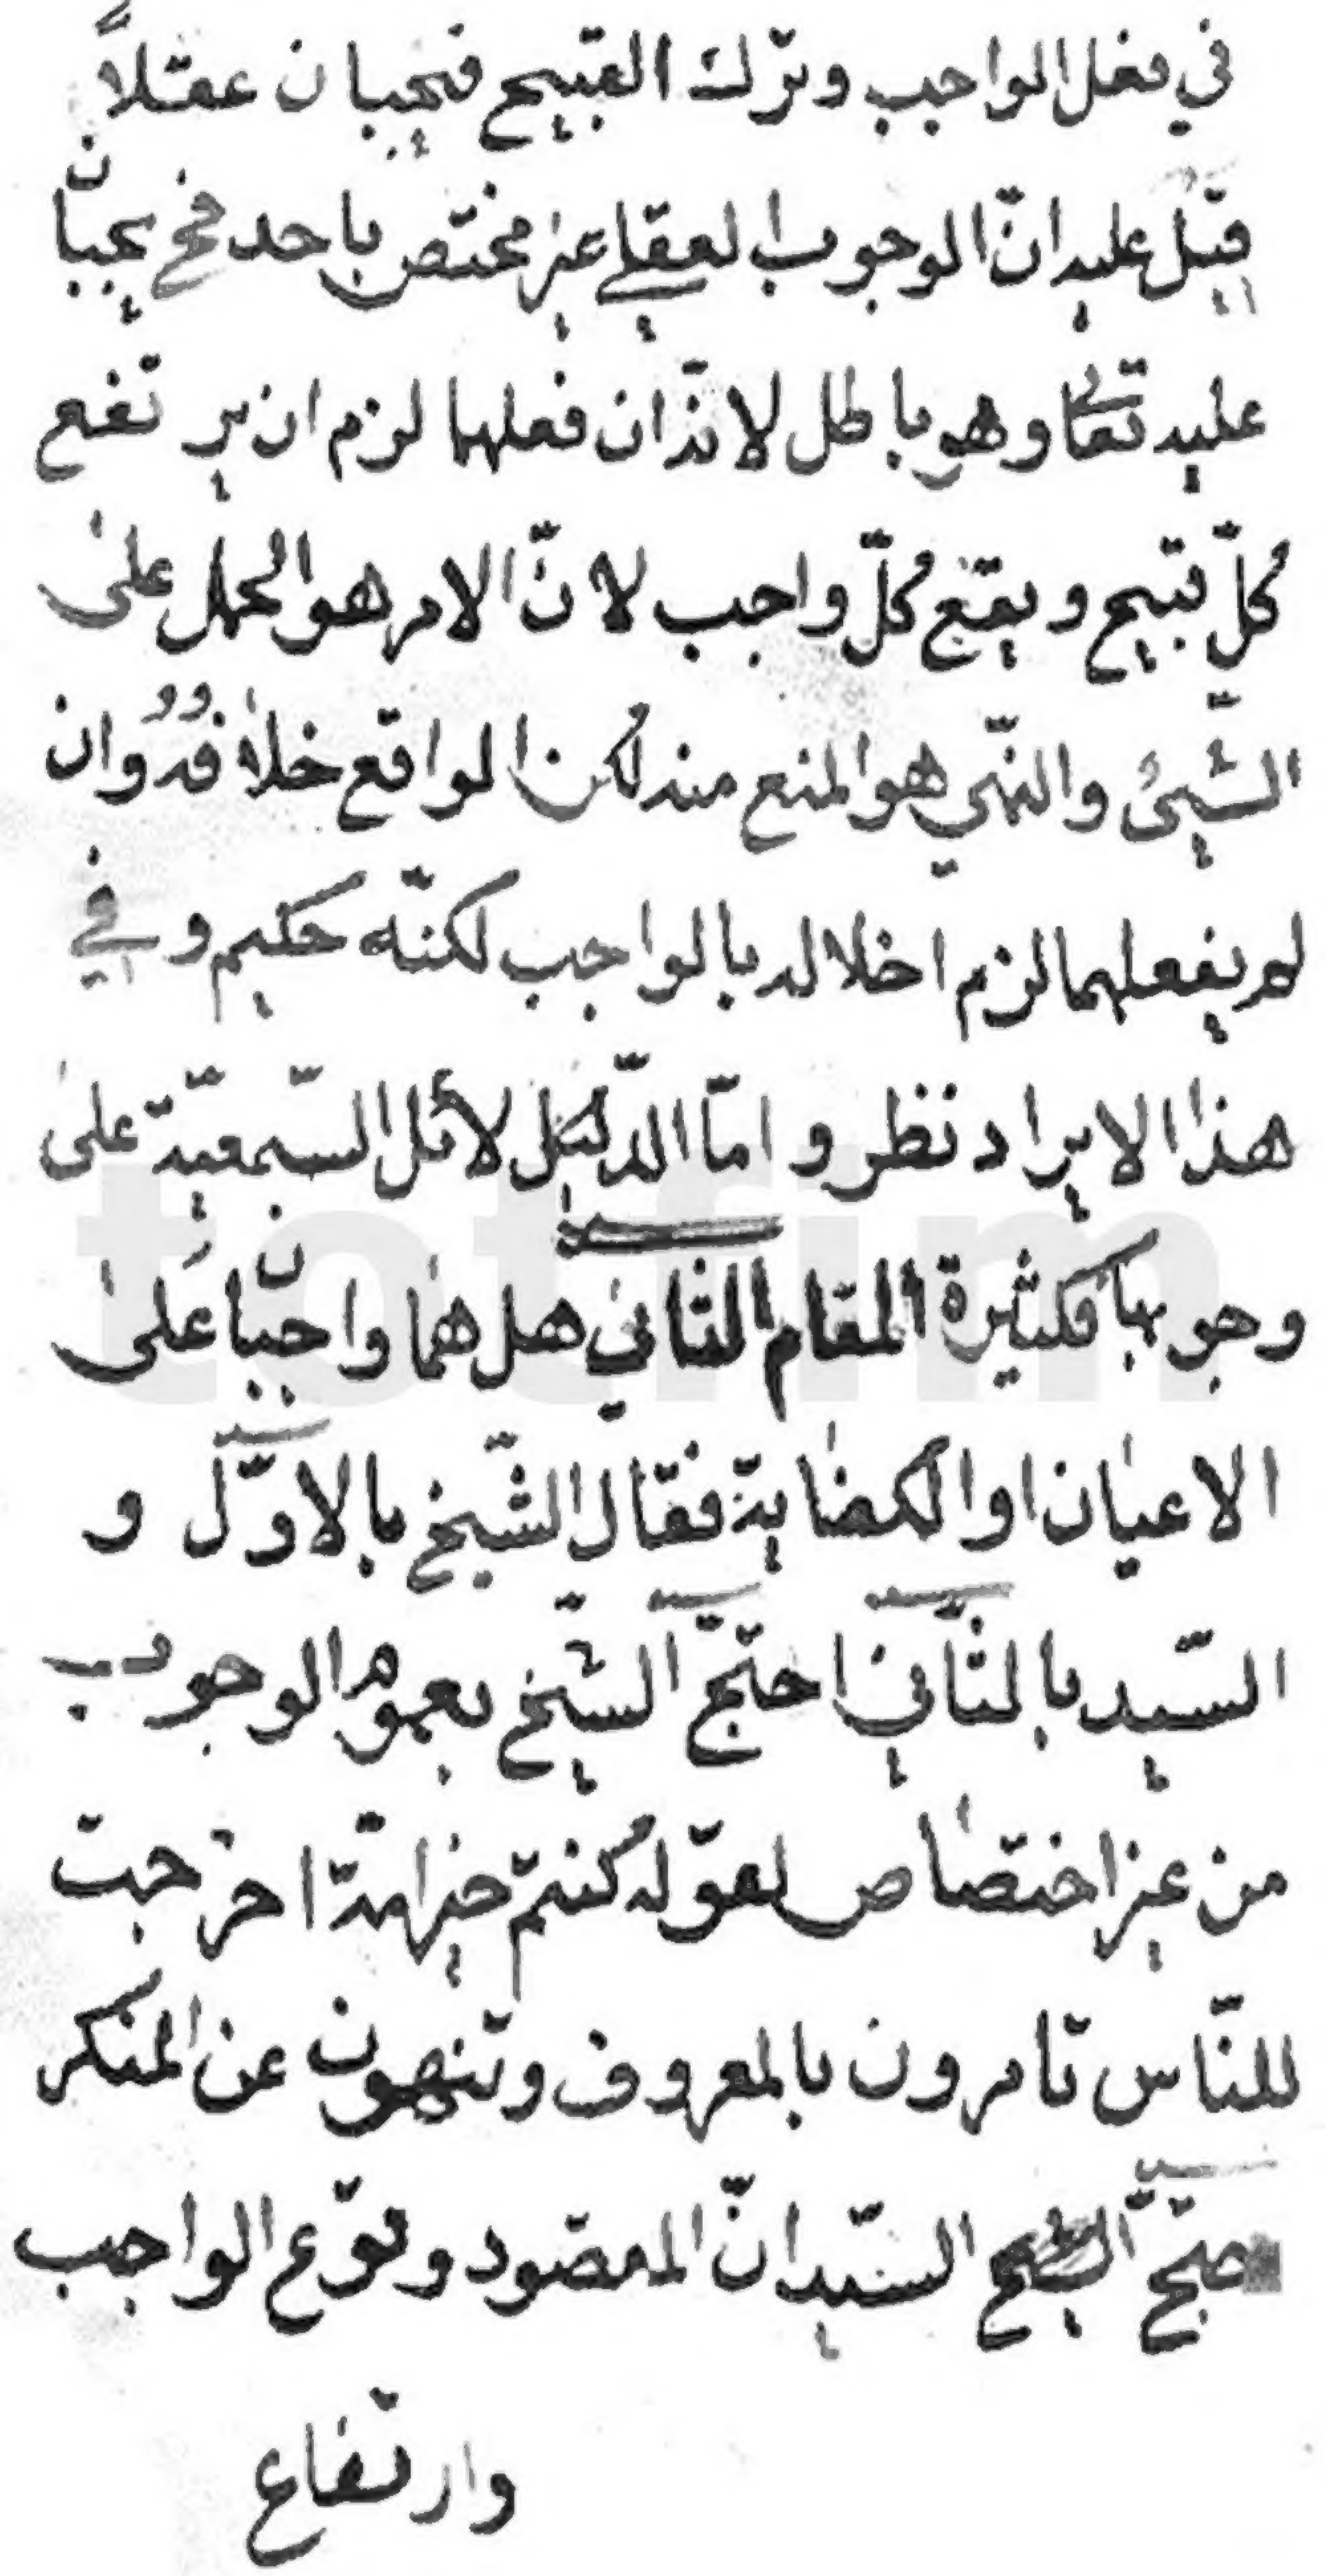 في فعل الواجب وترك القبيح فيجبان عقلاً
قيل عليه انّ الوجوب العقلي غير مختص باحد فح يجبان
عليه تعا وهو باطل لانّه ان فعلهما لزم ان يرتفع
كلّ قبيح ويقع كلّ واجب لانّ الامر هو الحمل على
الشّيئ والنّهي هو المنع منه لكن الواقع خلافه وان
لم يفعلهما لزم اخلاله بالواجب لكنّه حكيم وفي
هذا الايراد نظر وامّا الدّلائل السّمعيّة على
وجوبها فكثيرة المقام الثاني هل هما واجبان على
الاعيان او الكفاية فقال الشّيخ بالاوّل و
السّيد بالثّاني احتجّ الشّيخ بعموم الوجوب
من غير اختصاص لقوله كنتم خير امّة اخرجت
للنّاس تامرون بالمعروف وتنهون عن المنكر
احتجّ السّيد انّ المقصود وقوع الواجب
وارتفاع
totfim